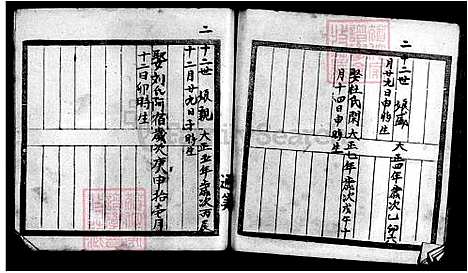 二十二世 娘盛 大正四年歲次乙卯六
月廿九日申時生
娶杜氏閑大正七年歲次戊午十
月十四日申時生
二十二世 娘親 大正五年歲次丙辰
十二月廿九日子時生
娶刘氏阿宿歲次庚申拾弍月
十二日卯時生